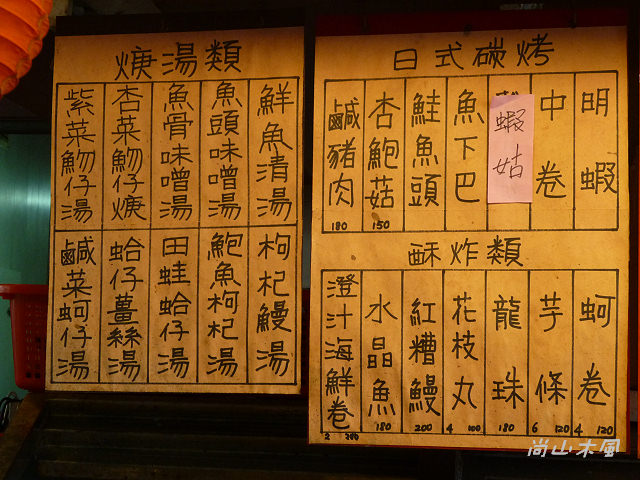 日式碳烤
明蝦
中卷
蝦姑
魚下巴
鮭魚頭
杏鮑菇
150
鹹豬肉
180
酥炸類
蚵卷
4 120
芋條
6 120
龍珠
180
花枝丸
4 100
紅糟鰻
200
水晶魚
180
澄汁海鮮卷
2 200
焿湯類
鮮魚清湯
魚頭味噌湯
魚骨味噌湯
杏菜魩仔焿
紫菜魩仔湯
枸杞鰻湯
鮑魚枸杞湯
田蛙蛤仔湯
蛤仔薑絲湯
鹹菜蚵仔湯
尚山木風